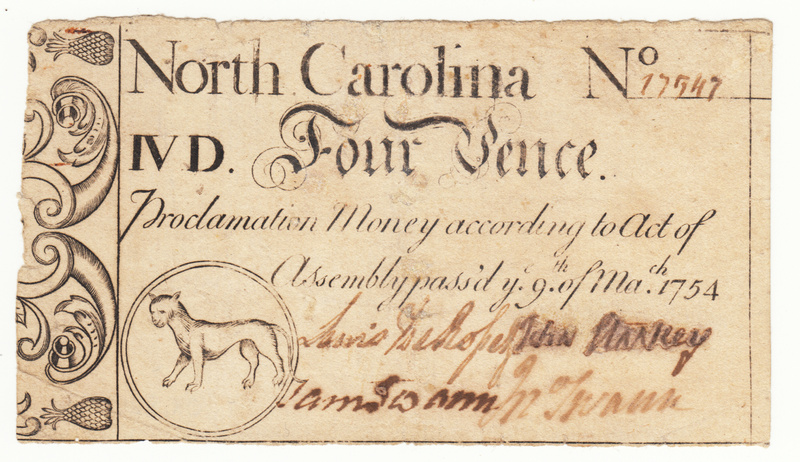 North Carolina No 17547
IVD. Four Pence.
Proclamation Money according to Act of
Assembly pass'd ye. 9th. of Mach. 1754
Lewis DeRosset John Starkey
Jams Swann Jno Swann